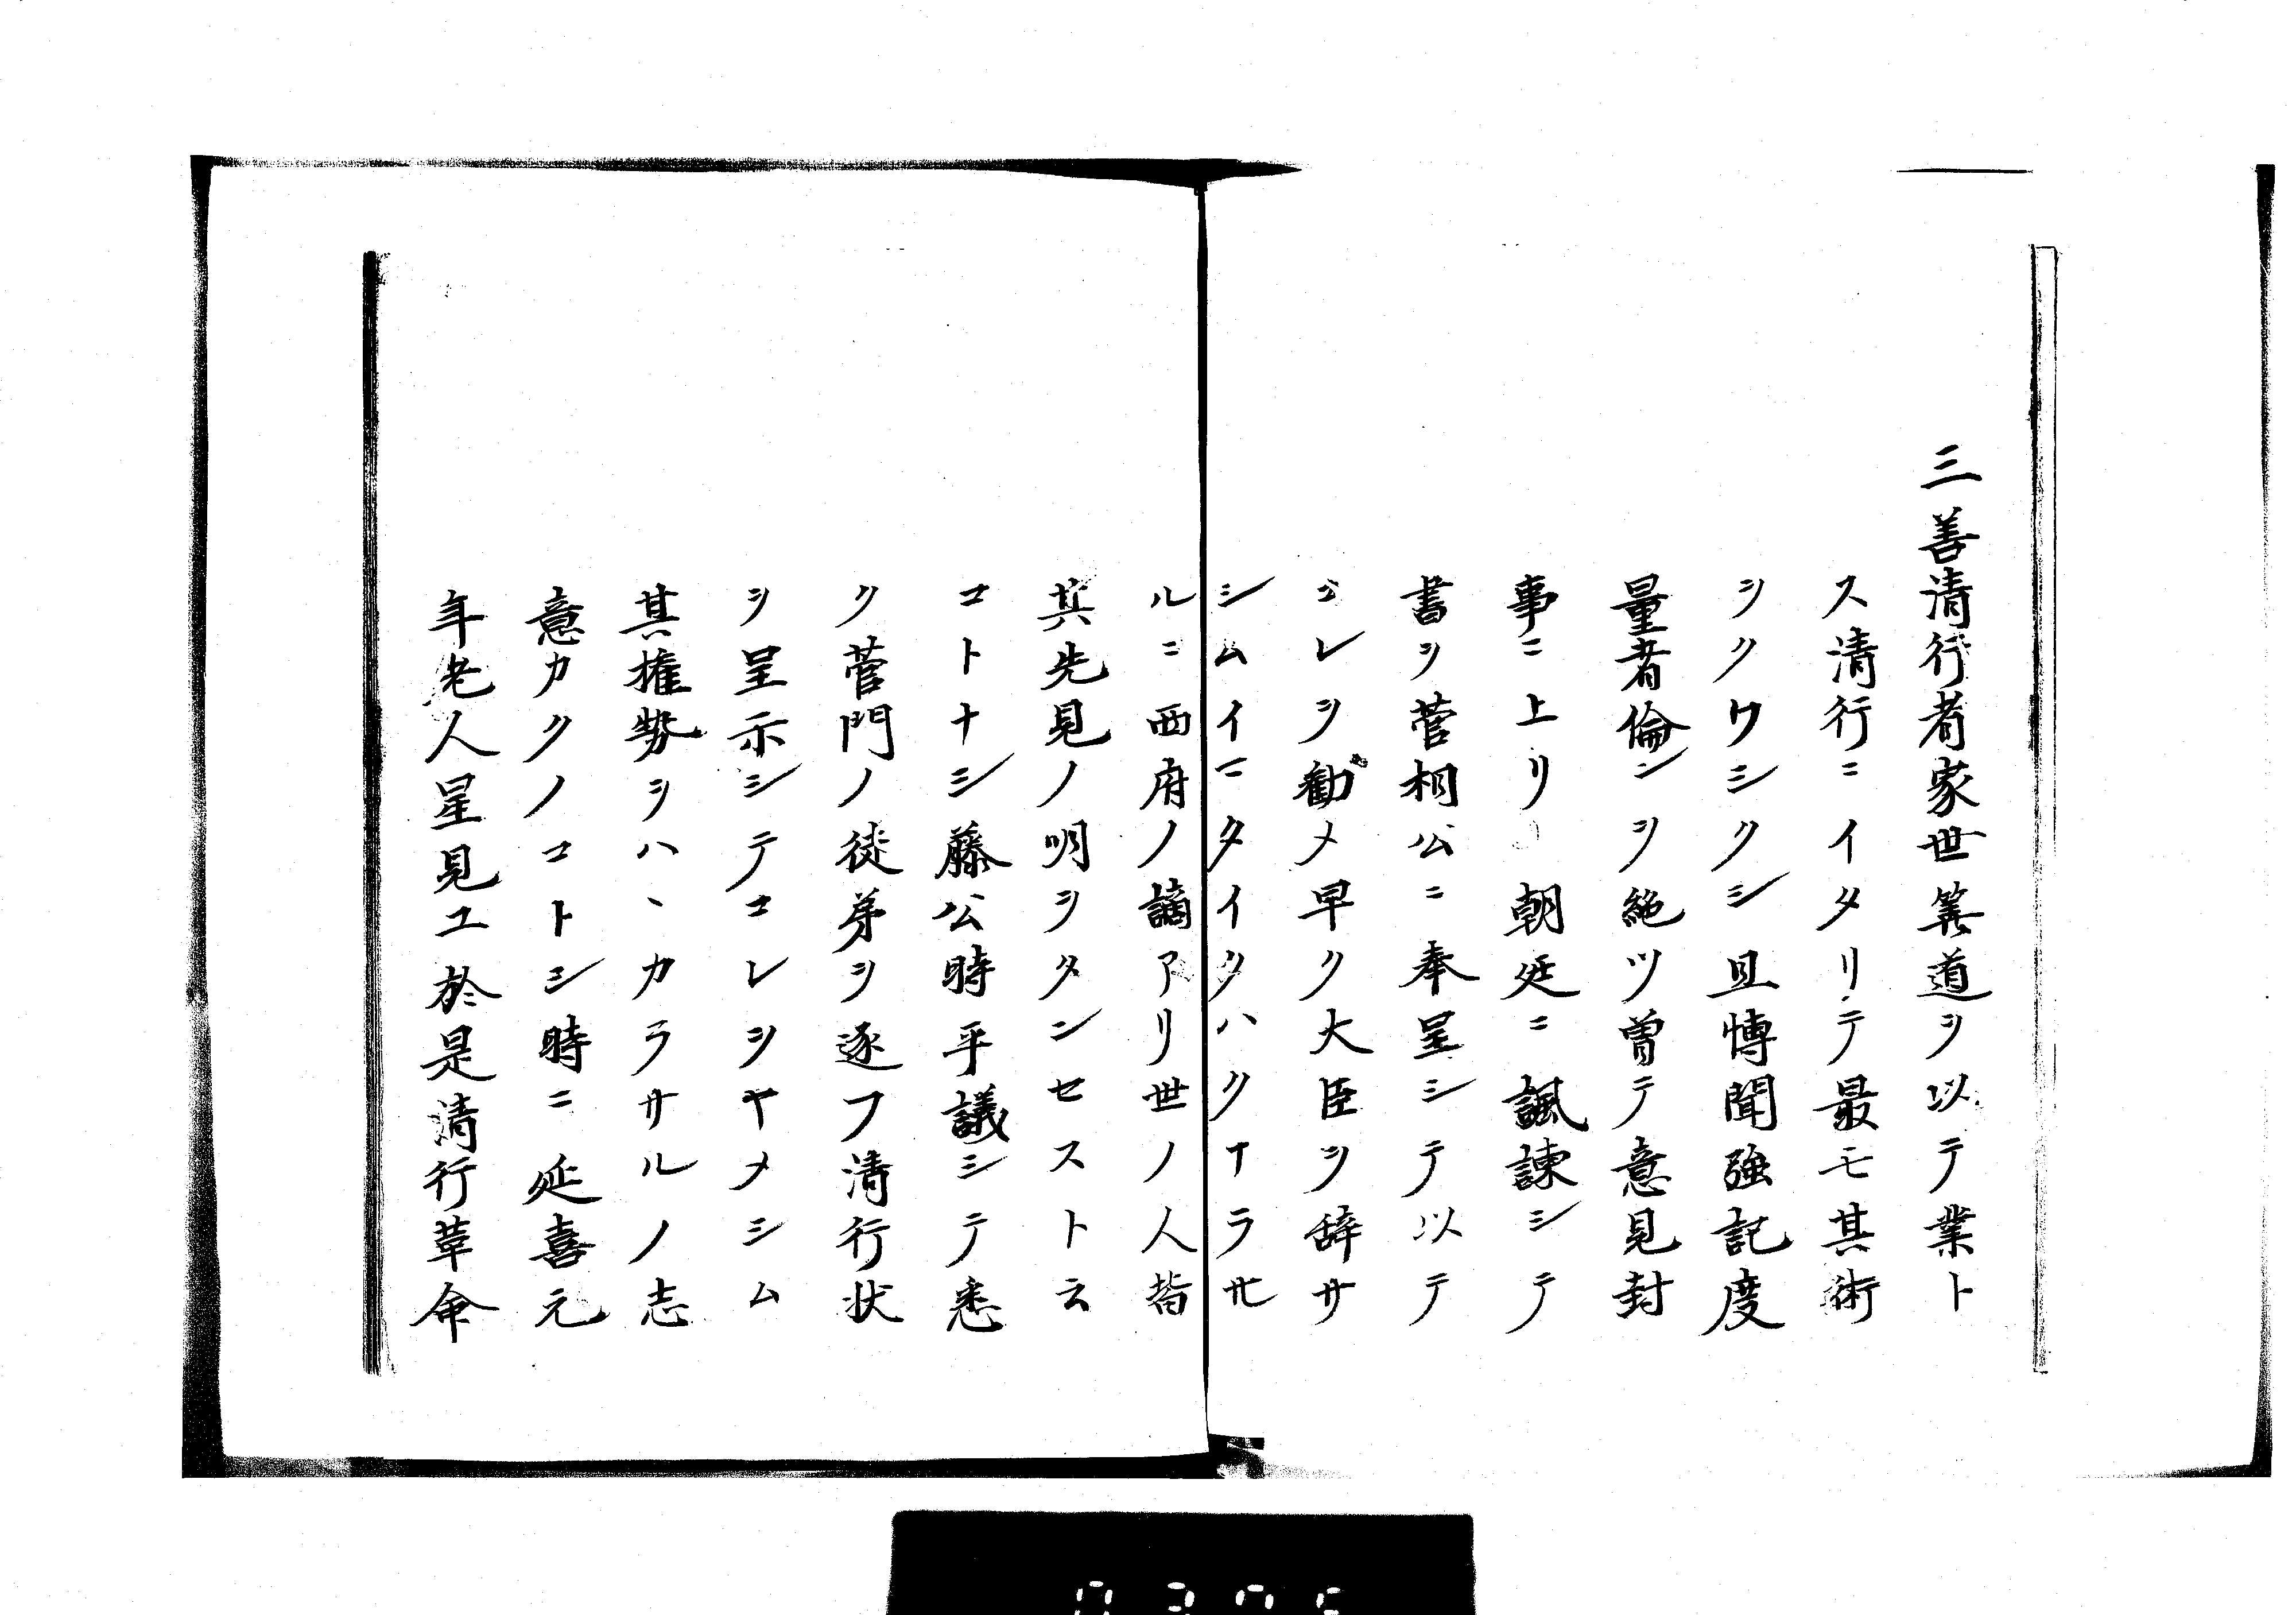 三善清行者家世筭道ヲ以テ業ト
ス清行ニイタリテ最モ其術
ヲクワシクシ且博聞強記度
量者倫ンヲ絶ツ曽テ意見封
事ニ上リ朝廷ニ諷諫シテ
書ヲ菅相公ニ奉呈シテ以テ
コレヲ勧メ早ク大臣ヲ辞サ
シムイニタイタハクナラサ
ルニ西府ノ謫アリ世ノ人皆
其先見ノ明ヲタンセスト云
コトナシ藤公時平議シテ悉
ク菅門ノ徒弟ヲ逐フ清行状
ヲ呈示シテコレヲヤメシム
其権勢ヲハヽカラサルノ志
意カクノコトシ時ニ延喜元
年老人星見エ於是清行革命